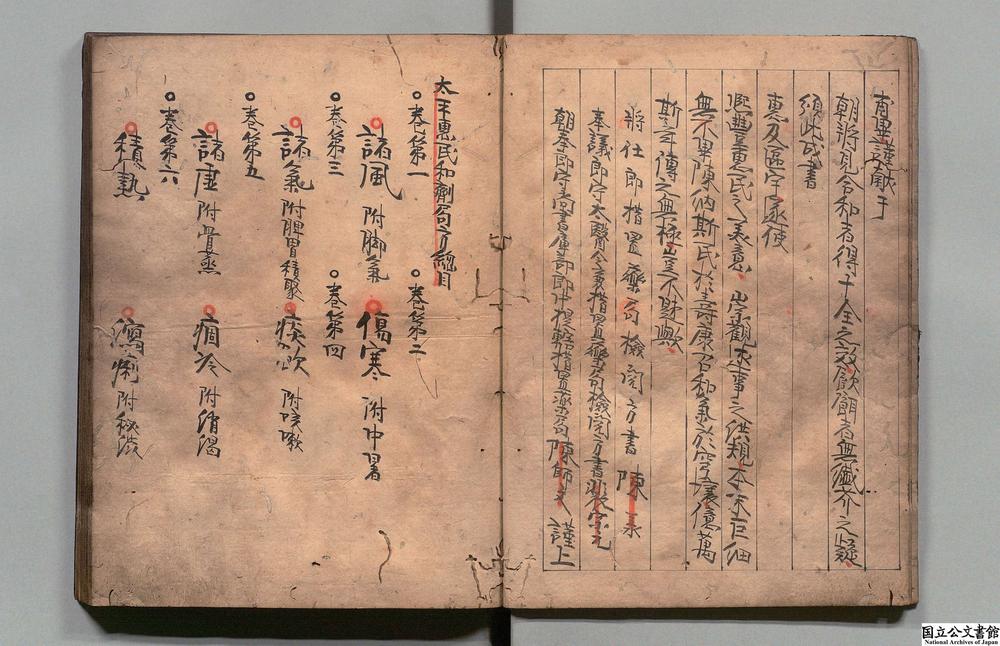 朝將見合和者得十全之效飲餌者無纖芥之疑
頒此成書
惠及區宇遂使
熙豐惠民之美意崇觀述事之洪規本末巨細
無不畢陳納斯民於壽康召和氣於穹壤億萬
斯年傳之無極豈不韙歟
將仕郎措置藥局檢閱方書陳承
奉議郎守太醫令兼措置藥局檢閱方書裴宗元
朝奉郎守尚書庫部郎中提轄措置藥局陳師文謹上
太平惠民和劑局方總目
卷第一
諸風附脚氣
卷第二
傷寒附中暑
卷第三
諸氣附脾胃積聚
卷第四
痰飲附咳嗽
卷第五
諸虛附骨蒸
痼冷附消渴
卷第六
積熱
瀉痢附秘澁
国立公文書館
National Archives of Japan